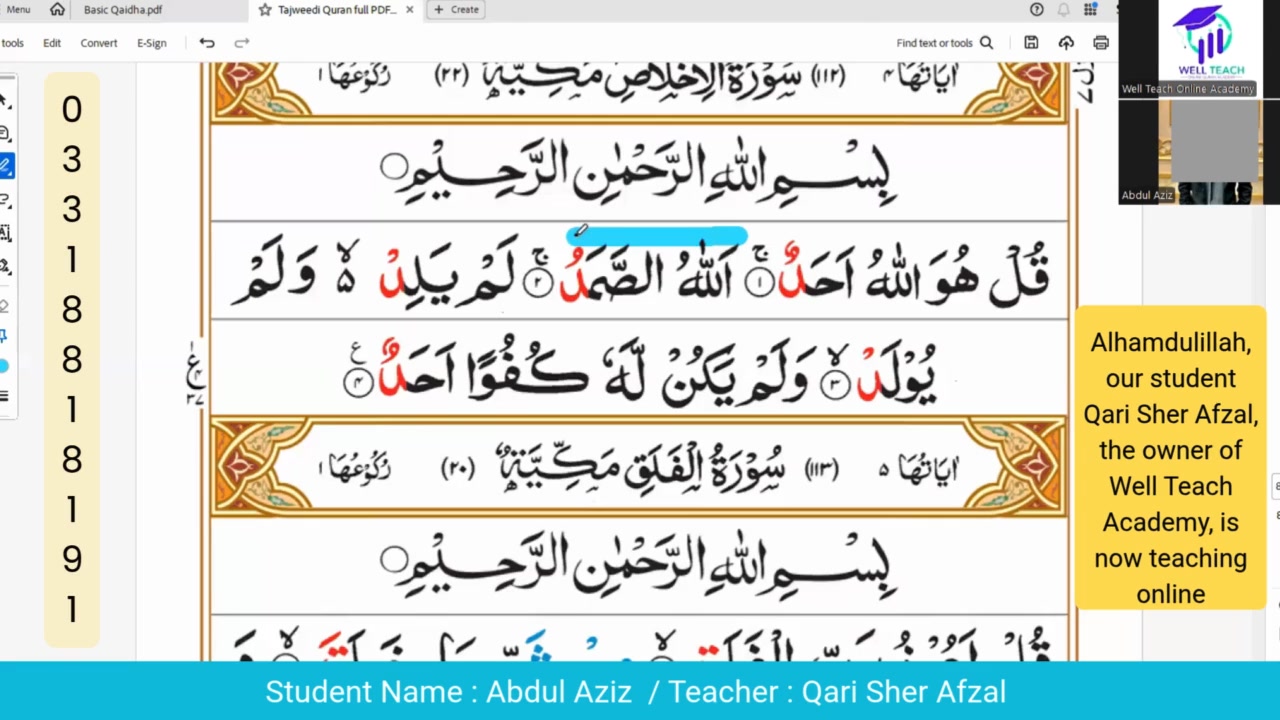 Menu
Basic Qaidha.pdf
Tajweedi Quran full PDF...
+ Create
tools
Edit
Convert
E-Sign
Find text or tools
WELL TEACH
Well Teach Online Academy
Abdul Aziz
اٰيَاتُهَا ٤ (١١٢) سُوْرَةُ الْاِخْلَاصِ مَكِّيَّةٌ (٢٢) رُكُوْعُهَا ١
بِسْمِ اللّٰهِ الرَّحْمٰنِ الرَّحِيْمِ
قُلْ هُوَ اللّٰهُ اَحَدٌ ۚ ١ اَللّٰهُ الصَّمَدُ ۚ ٢ لَمْ يَلِدْ ۙ٥ وَلَمْ
يُوْلَدْ ۙ ٣ وَلَمْ يَكُنْ لَّهٗ كُفُوًا اَحَدٌ ٤ ع
اٰيَاتُهَا ٥ (١١٣) سُوْرَةُ الْفَلَقِ مَكِّيَّةٌ (٢٠) رُكُوْعُهَا ١
بِسْمِ اللّٰهِ الرَّحْمٰنِ الرَّحِيْمِ
0
3
3
1
8
8
1
8
1
9
1
Alhamdulillah,
our student
Qari Sher Afzal,
the owner of
Well Teach
Academy, is
now teaching
online
Student Name : Abdul Aziz / Teacher : Qari Sher Afzal